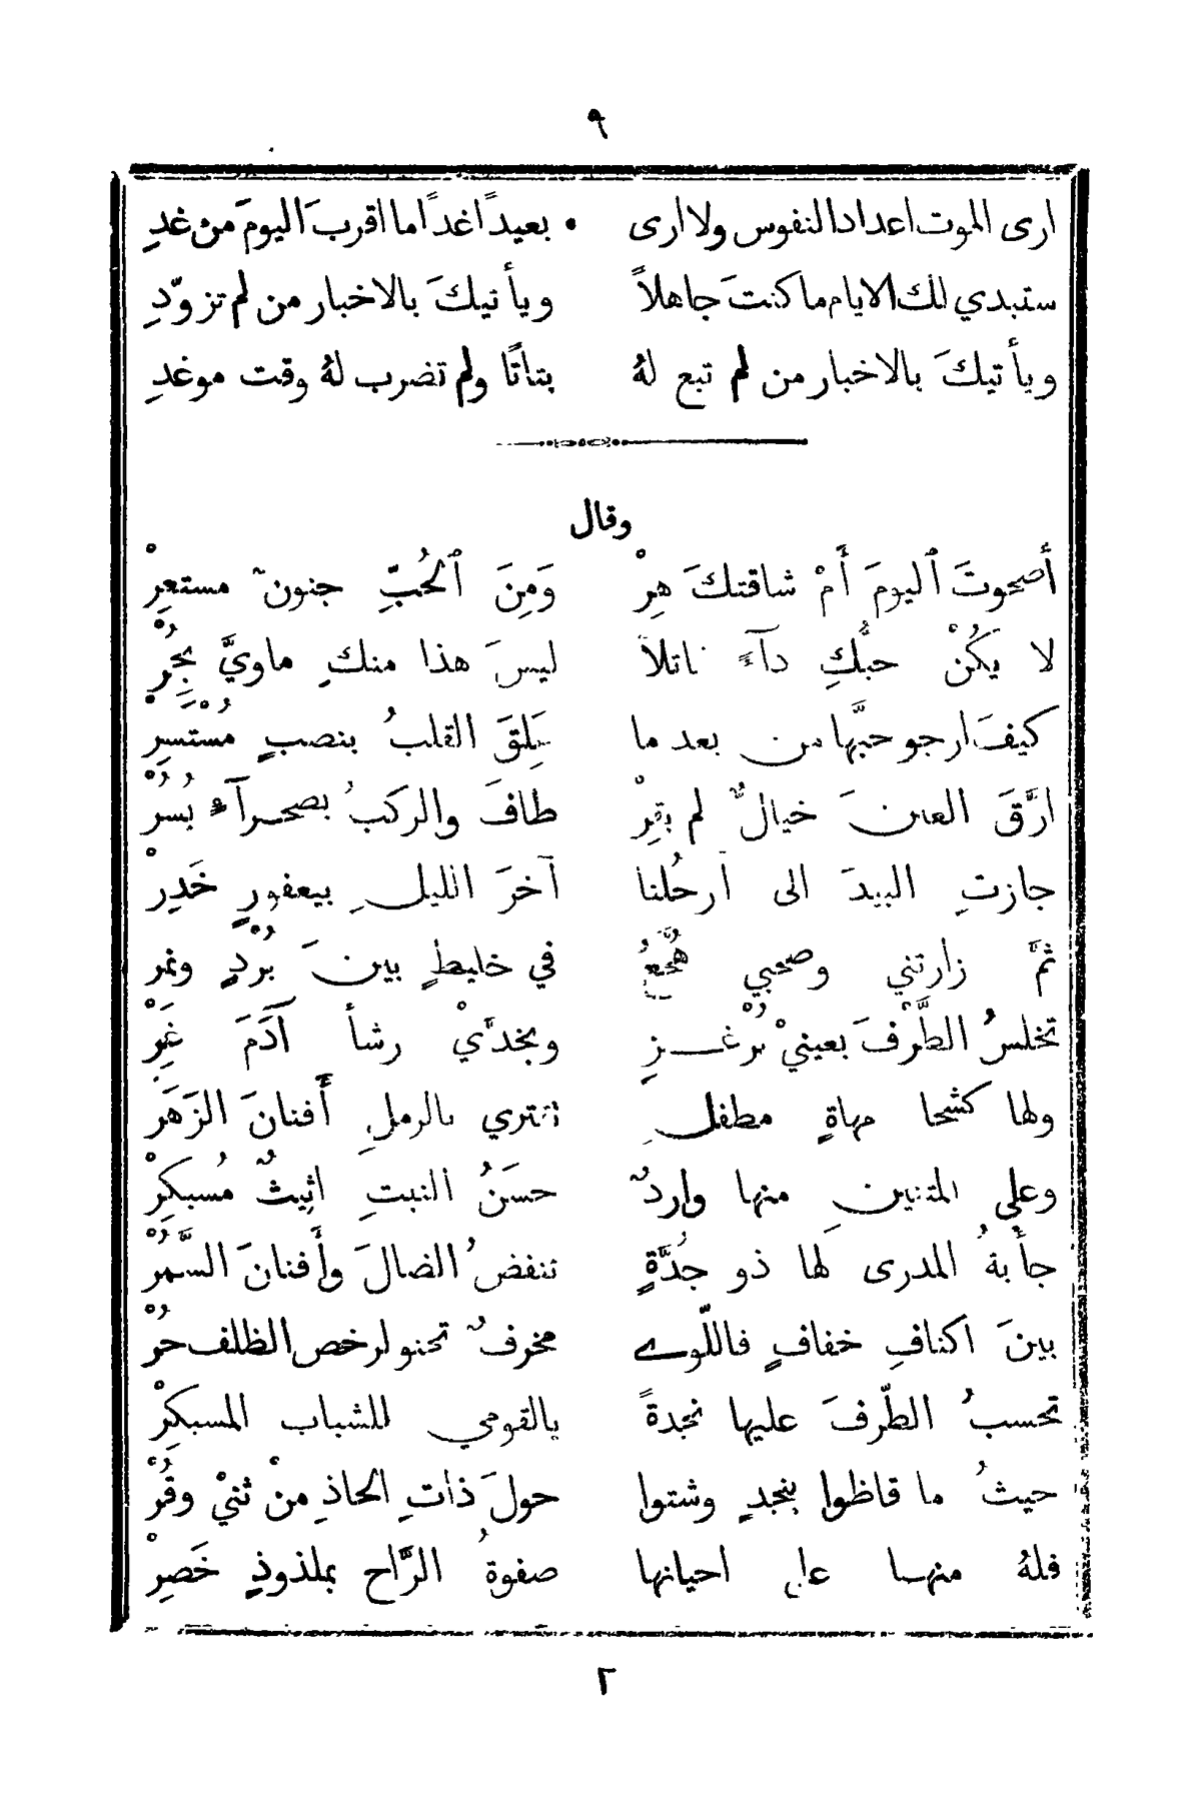 ٩
ارى الموت اعداد النفوس ولا ارى • بعيداً غداً ما اقربَ اليومَ من غدِ
ستبدي لك الايام ما كنتَ جاهلاً ويأتيكَ بالاخبار من لم تزوّدِ
ويأتيكَ بالاخبار من لم تبع لهُ بتاتًا ولم تضرب لهُ وقت موعدِ
وقال
أصحوتَ ٱليومَ أَمْ شاقتكَ هِرْ وَمِنَ ٱلحُبِّ جنونٌ مستعِرْ
لا يكُنْ حبُّكِ دآءً قاتلاً ليسَ هذا منكِ ماويَّ بحُرْ
كيفَ ارجو حبَّها من بعد ما عَلِقَ القلبُ بنصبٍ مُسْتَسِرْ
ارَّقَ العينَ خيالٌ لم يقِرْ طافَ والركبُ بصحرآءِ يُسُرْ
جازتِ البيدَ الى أرحُلنا آخرَ الليلِ بيعفورٍ خَدِرْ
ثمَّ زارتني وصحبي هُجَّعٌ في خليطٍ بينَ بُرْدٍ ونمر
تخلسُ الطَّرْفَ بعينيْ بُرْغزٍ وبخدَّيْ رشأ آدَمَ غَِرْ
ولها كشحا مهاةٍ مطفلٍ تقتري بالرملِ أَفنانَ الزَهَرْ
وعلى المتنينِ منها واردٌ حسَنُ النبتِ اثيثٌ مُسبكِرْ
جأْبةُ المدرى لها ذو جُدَّةٍ تنفضُ الضالَ وأَفنانَ السَّمُرْ
بينَ اكنافِ خفافٍ فاللّوے مخرفٌ تحنو لرخص الظلف حُرْ
تحسبُ الطّرفَ عليها نجدةً يالقومي للشباب المسبكِرْ
حيثُ ما قاظوا بنجدٍ وشتوا حولَ ذاتِ الحاذِ مِنْ ثنيْ وقُرْ
فلهُ منها على احيانها صفوةُ الرَّاح بملذوذٍ خَصِرْ
٢